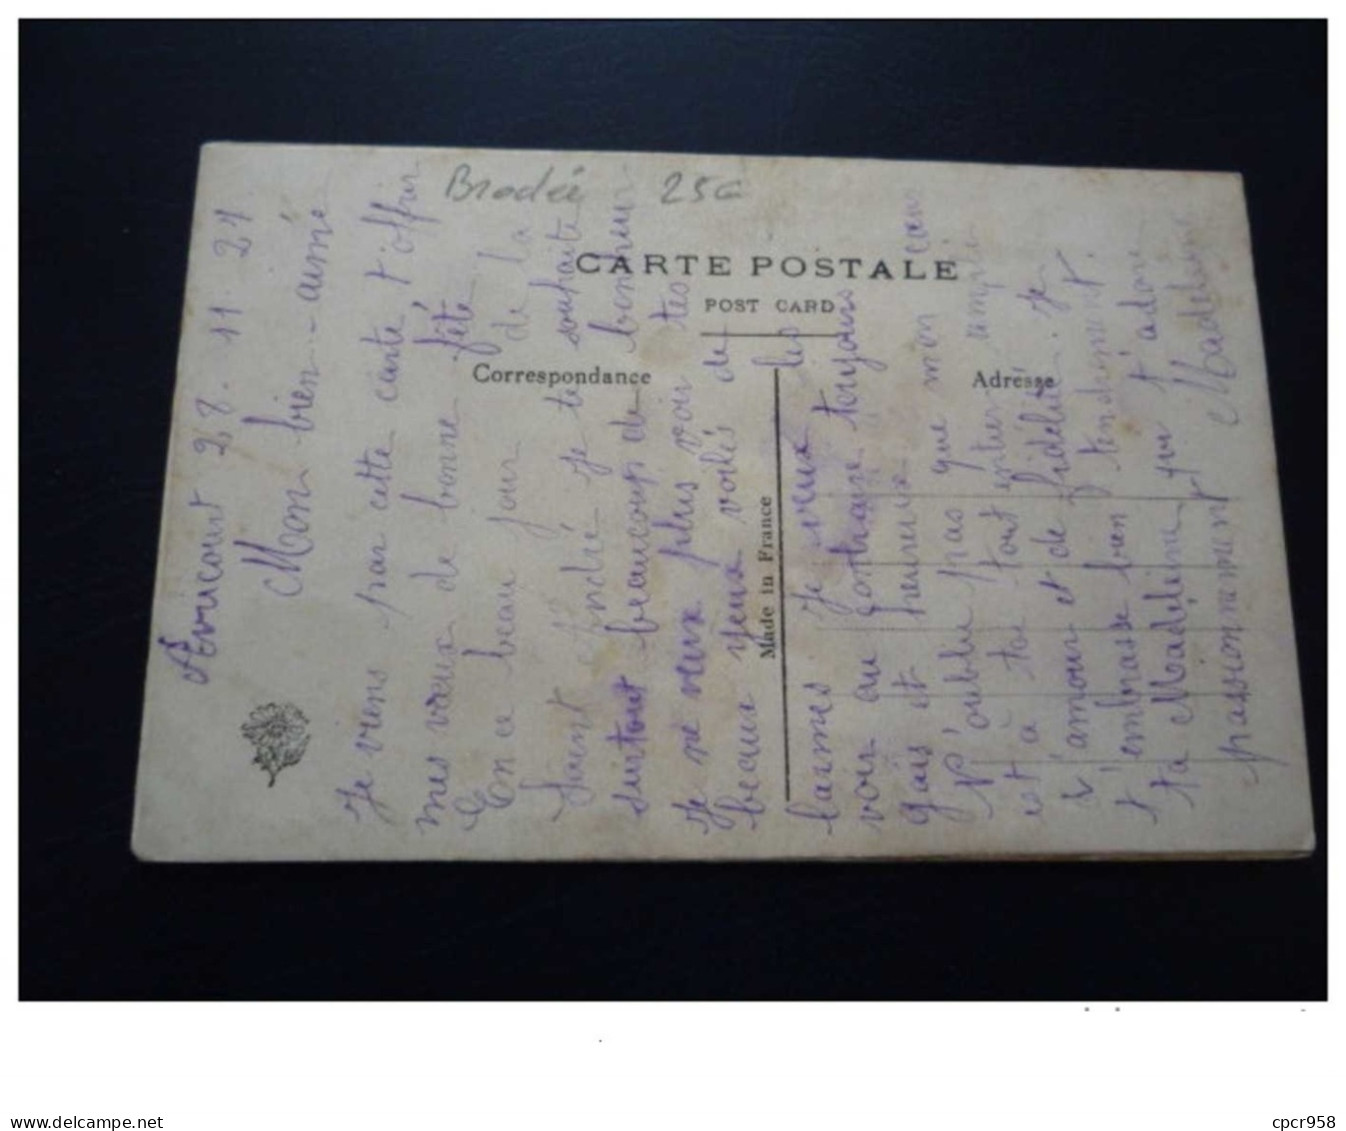 Brodée 25€
CARTE POSTALE
POST CARD
Correspondance
Adresse
Made in France
Avricourt 28. 11. 27
Mon bien-aimé
Je viens par cette carte t'offrir
mes vœux de bonne fête
En ce beau jour de la
Saint André je te souhaite
surtout beaucoup de bonheur
Je ne veux plus voir tes
beaux yeux voilés de
larmes. Je veux les
voir au contraire toujours
gais et heureux
N'oublie pas que mon cœur
est à toi tout entier rempli
d'amour et de fidélité. Je
t'embrasse bien tendrement.
ta Madeleine qui t'adore
passionnement Madeleine
www.delcampe.net
cpcr958